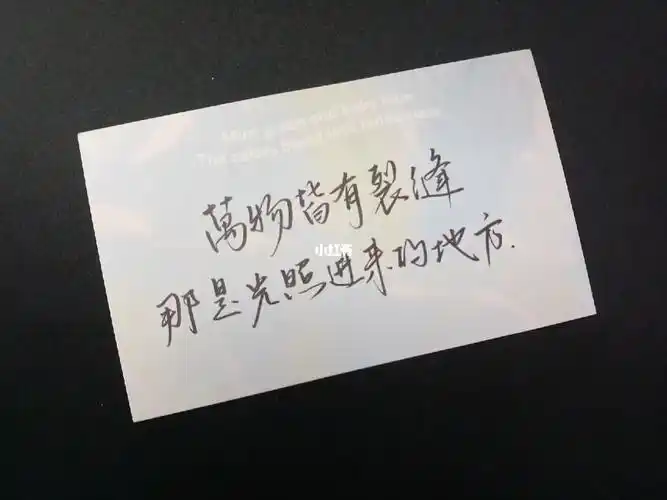 萬物皆有裂缝
小红书
那是光照进来的地方.